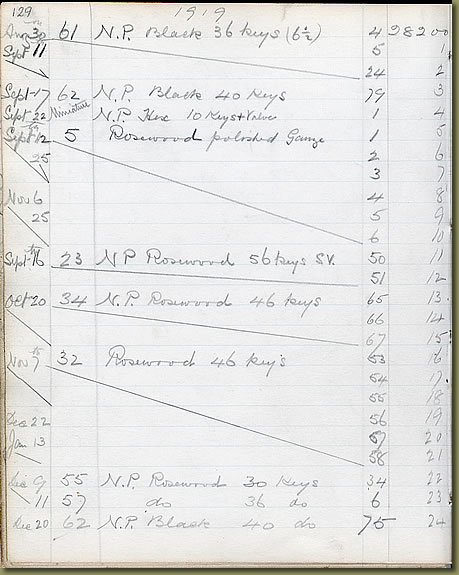 129 1919
Aug 30 61 N.P. Black 36 Keys (6½) 4 28200
Sept 11 5 1
24 2
Sept 17 62 N.P. Black 40 Keys 79 3
Sept 22 Miniature N.P. Hex 10 Keys + Valves 1 4
Sept 12 5 Rosewood polished Gauze 1 5
25 2 6
3 7
Nov 6 4 8
25 5 9
6 10
Sept 16th 23 N P Rosewood 56 keys SV. 50 11
51 12
Oct 20 34 N.P. Rosewood 46 keys 65 13
66 14
67 15
Nov 7th 32 Rosewood 46 keys 53 16
54 17
55 18
Dec 22 56 19
Jan 13 57 20
58 21
Dec 9 55 N.P. Rosewood 30 Keys 34 22
11 57 do 36 do 6 23
Dec 20 62 N.P. Black 40 do 75 24